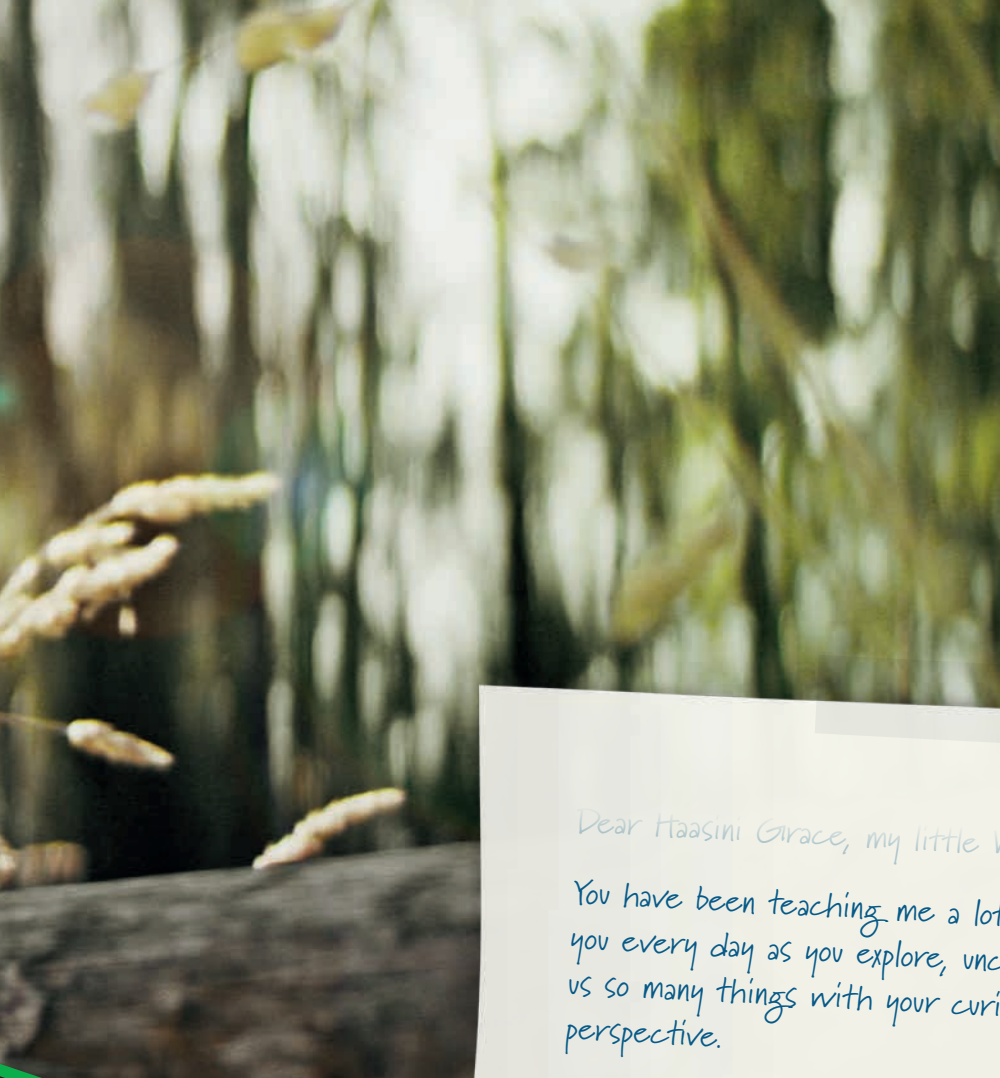 Dear Haasini Grace, my little
You have been teaching me a lot
you every day as you explore,
us so many things with your
perspective.